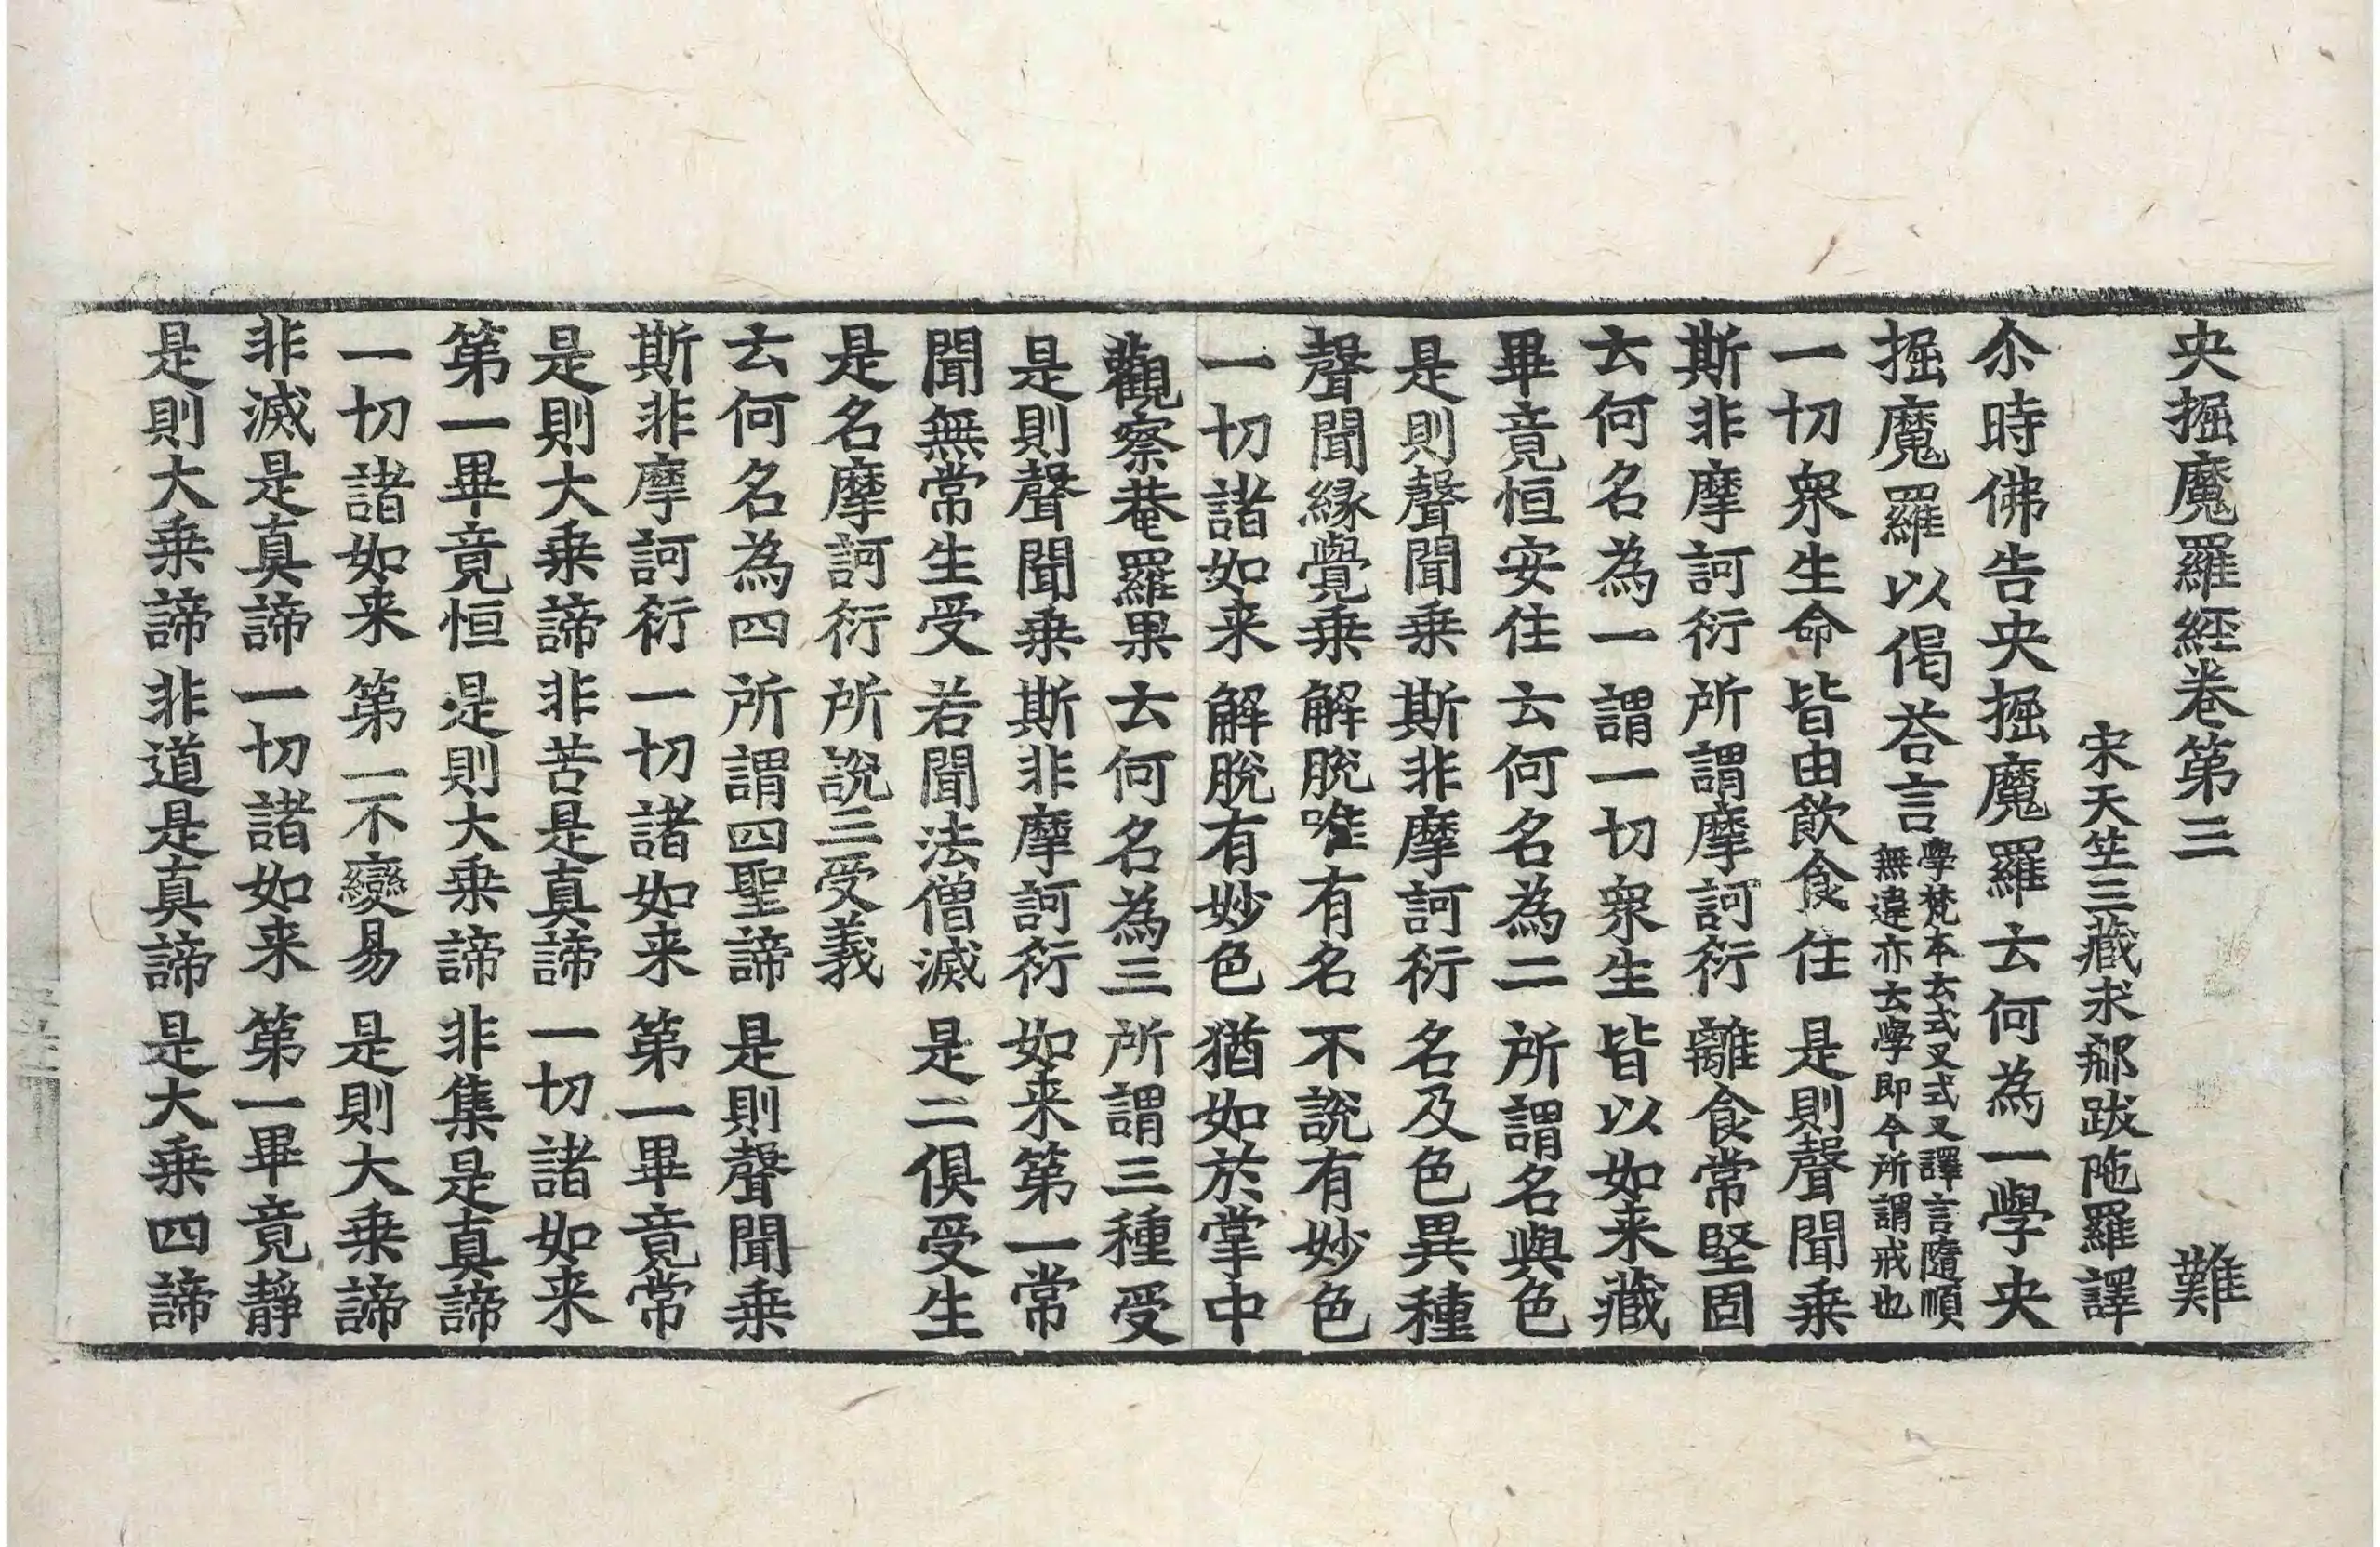 央掘魔羅経卷第三 難
宋天竺三藏求𨚗跋陁羅譯
尒時佛告央掘魔羅云何為一學央
掘魔羅以偈荅言學梵本云式叉式叉譯言隨順
無違亦云學即今所謂戒也
一切衆生命 皆由飲食住 是則聲聞乗
斯非摩訶衍 所謂摩訶衍 離食常堅固
云何名為一 謂一切衆生 皆以如来藏
畢竟恒安住 云何名為二 所謂名與色
是則聲聞乗 斯非摩訶衍 名及色異種
聲聞緣覺乗 解脫唯有名 不說有妙色
一切諸如来 解脫有妙色 猶如於掌中
觀察菴羅果 云何名為三 所謂三種受
是則聲聞乗 斯非摩訶衍 如来第一常
聞無常生受 若聞法僧滅 是二俱受生
是名摩訶衍 所說三受義
云何名為四 所謂四聖諦 是則聲聞乗
斯非摩訶衍 一切諸如来 第一畢竟常
是則大乗諦 非苦是真諦 一切諸如来
第一畢竟恒 是則大乗諦 非集是真諦
一切諸如来 第一不變易 是則大乗諦
非滅是真諦 一切諸如来 第一畢竟靜
是則大乗諦 非道是真諦 是大乗四諦